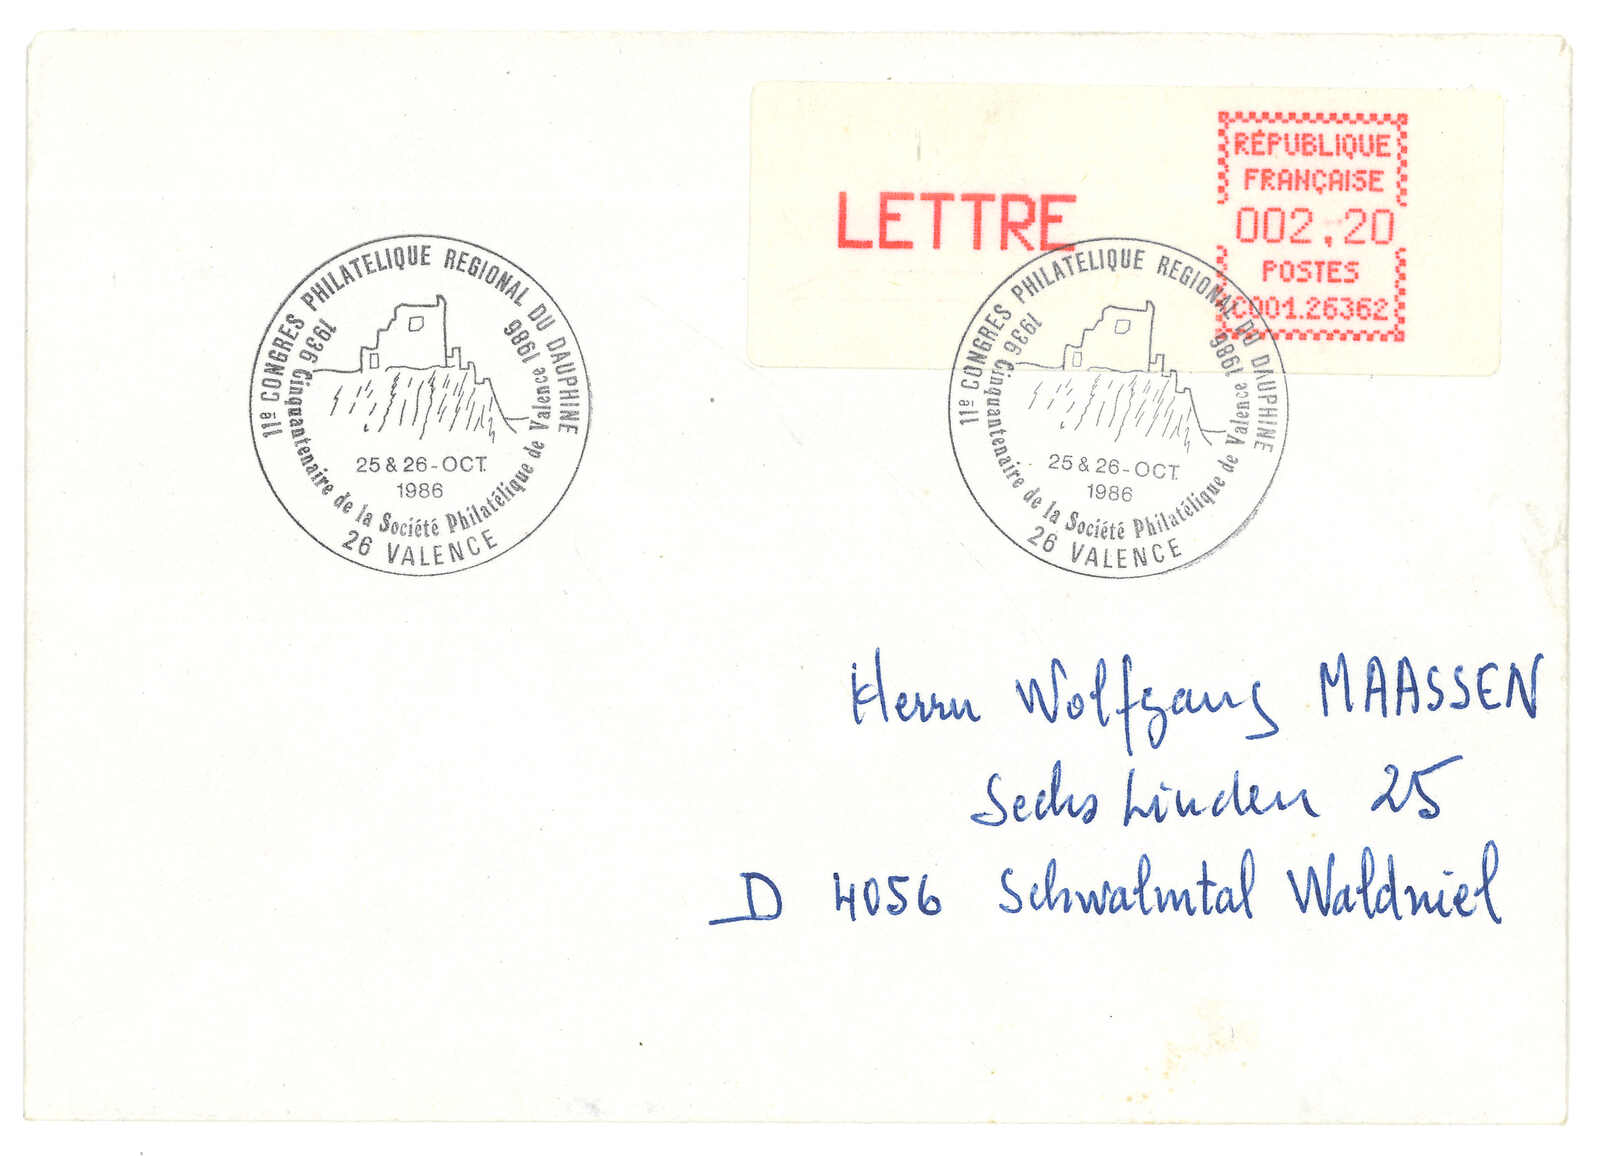 RÉPUBLIQUE
FRANÇAISE
LETTRE
002,20
POSTES
C001.26362
11e CONGRES PHILATELIQUE REGIONAL DU DAUPHINE
1936 Cinquantenaire de la Société Philatélique de Valence 1986
25 & 26-OCT.
1986
26 VALENCE
11e CONGRES PHILATELIQUE REGIONAL DU DAUPHINE
1936 Cinquantenaire de la Société Philatélique de Valence 1986
25 & 26-OCT.
1986
26 VALENCE
Herrn Wolfgang MAASSEN
Sechs Linden 25
D 4056 Schwalmtal Waldniel